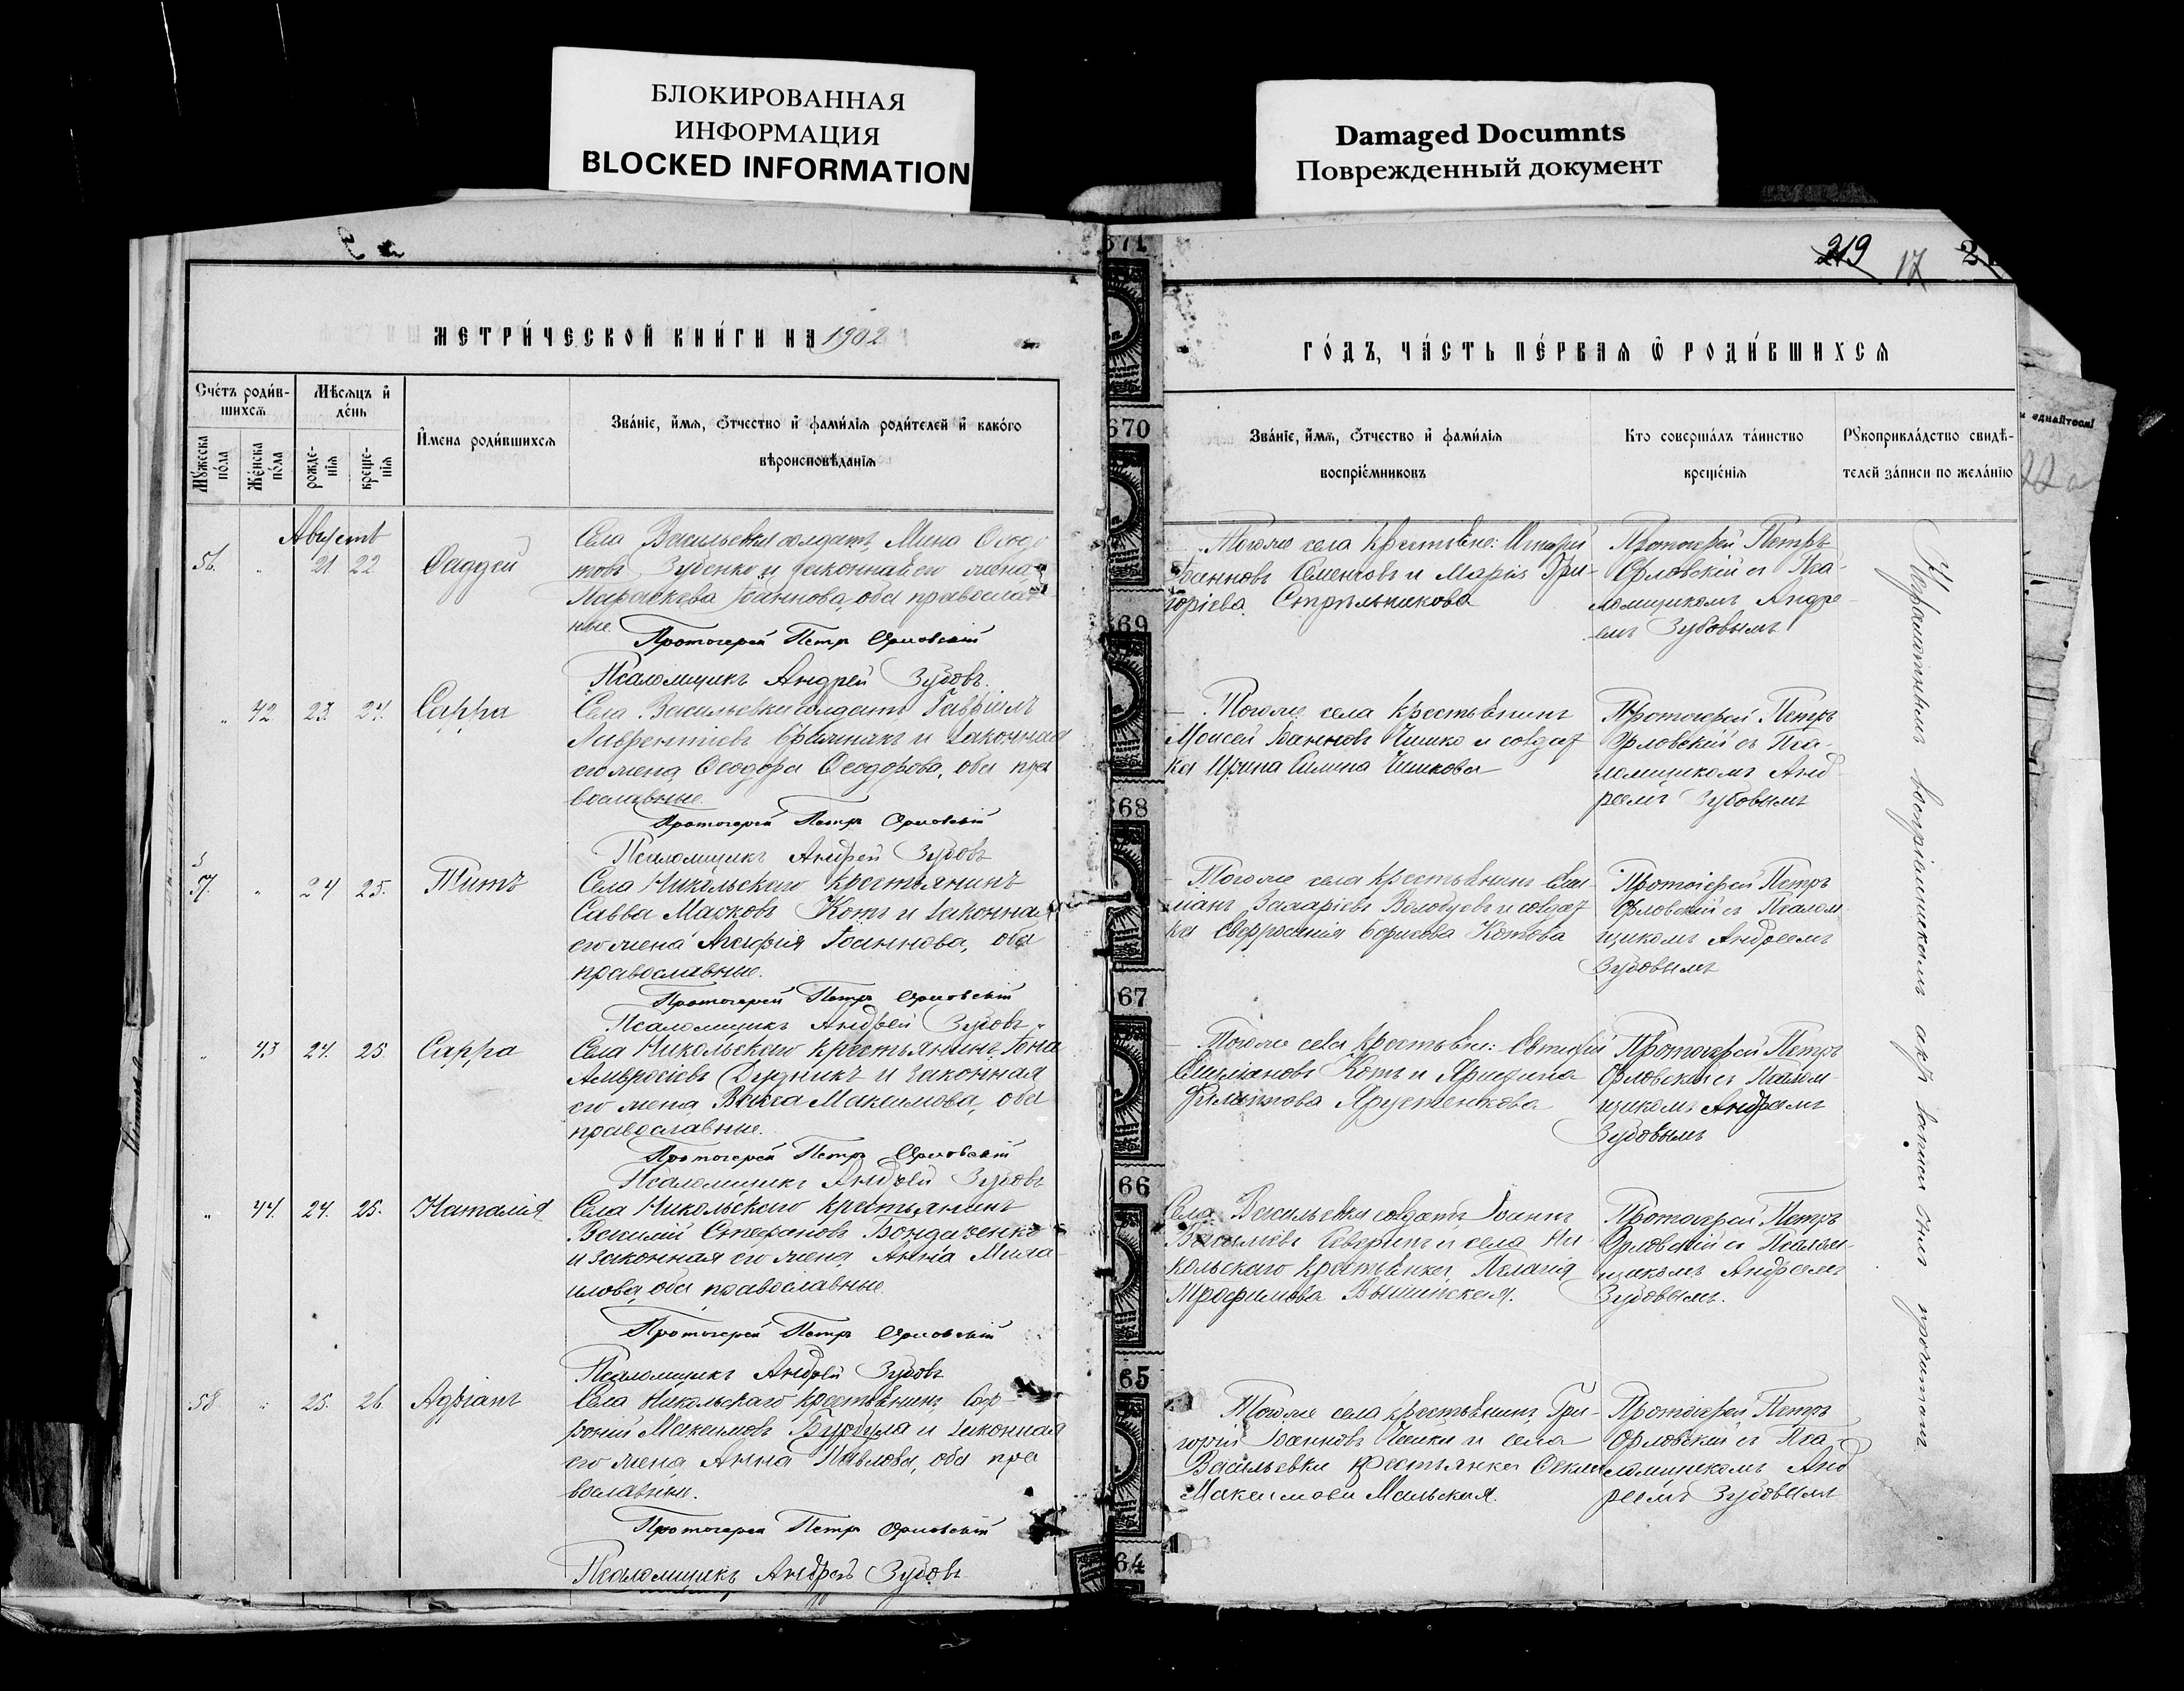 БЛОКИРОВАННАЯ
ИНФОРМАЦИЯ
BLOCKED INFORMATION
Damaged Documnts
Поврежденный документ
219 17
МЕТРИ́ЧЕСКОЙ КНИ́ГИ НА 1902
ГО́ДЪ, ЧА́СТЬ ПЕ́РВАѦ Ѡ҆ РОДИ́ВШИХСѦ
Сче́тъ роди́в-
шихсѧ
Мꙋ́жеска по́ла
Же́нска по́ла
Мѣ́сѧцъ и҆
де́нь
рожде́-
нїѧ
креще́-
нїѧ
И҆мена роди́вшихсѧ
Зва́нїе, и҆́мѧ, ѻ҆́тчество и҆ фами́лїѧ роди́телей и҆ како́го
вѣроисповѣ́данїѧ
Зва́нїе, и҆́мѧ, ѻ҆́тчество и҆ фами́лїѧ
воспрїе́мниковъ
Кто соверша́лъ та́инство
креще́нїѧ
Рꙋкоприкла́дство свидѣ́-
телей за́писи по жела́нїю
Августъ
56. " 21 22 Фаддей
Села Васильевки солдатъ, Мина
Зубенко и законная его жена
Параскева Іоаннова, оба православ-
ные.
Протоіерей Петръ Орловскій
Псаломщикъ Андрей Зубовъ.
Тогоже села крестьяне:
Іоанновъ Семеновъ и Марія Гри-
горіева Стрѣльникова
Протоіерей Петръ
Орловскій съ Пса-
ломщикомъ Андре-
емъ Зубовымъ
" 42 23. 24. Сарра
Села Васильевки солдатъ Гавріилъ
Лаврентіевъ и законная
его жена Ѳеодора Ѳеодорова, оба пра
вославные.
Протоіерей Петръ Орловскій
Псаломщикъ Андрей Зубовъ
Тогоже села крестьянинъ
Моисей Іоанновъ Чишко и солдат
ка Ирина Чишкова
Протоіерей Петръ
Орловскій съ Пса-
ломщикомъ Анд
реемъ Зубовымъ
57. " 24 25. Титъ
Села Никольскаго крестьянинъ
Савва Марковъ Котъ и законная
его жена Агафія Іоаннова, оба
православные.
Протоіерей Петръ Орловскій
Псаломщикъ Андрей Зубовъ
Тогоже села крестьянинъ Еми-
ліанъ Захаріевъ и солдат
ка Борисова Котова
Протоіерей Петръ
Орловскій съ Псалом-
щикомъ Андреемъ
Зубовымъ
" 43 24. 25 Сарра
Села Никольскаго крестьянинъ Іона
Амвросіевъ и законная
его жена Васса Максимова, оба
православные.
Протоіерей Петръ Орловскій
Псаломщикъ Андрей Зубовъ
Тогоже села крестьяне: Евтихій
Емиліановъ Котъ и
Филиппова
Протоіерей Петръ
Орловскій съ Псалом-
щикомъ Андреемъ
Зубовымъ
" 44. 24. 25. Наталія
Села Никольскаго крестьянинъ
Василій Стефановъ Бондаренко
и законная его жена Анна Миха
илова, оба православные.
Протоіерей Петръ Орловскій
Псаломщикъ Андрей Зубовъ
Села Васильевки солдатъ Іоаннъ
Васильевъ и села Ни-
кольскаго крестьянка Пелагія
Трофимова Вышинская.
Протоіерей Петръ
Орловскій съ Псалом-
щикомъ Андреемъ
Зубовымъ.
58 " 25. 26. Адріанъ
Села Никольскаго крестьянинъ Соф-
роній Максимовъ и законная
его жена Анна Павлова, оба пра
вославные.
Протоіерей Петръ Орловскій
Псаломщикъ Андрей Зубовъ
Тогоже села крестьянинъ Гри-
горій Іоанновъ и села
Васильевки крестьянка
Максимова Мальская.
Протоіерей Петръ
Орловскій съ Пса-
ломщикомъ Анд
реемъ Зубовымъ
Неграмотнымъ воспріемникамъ актъ записи былъ прочитанъ.
671
670
69
68
67
66
65
64